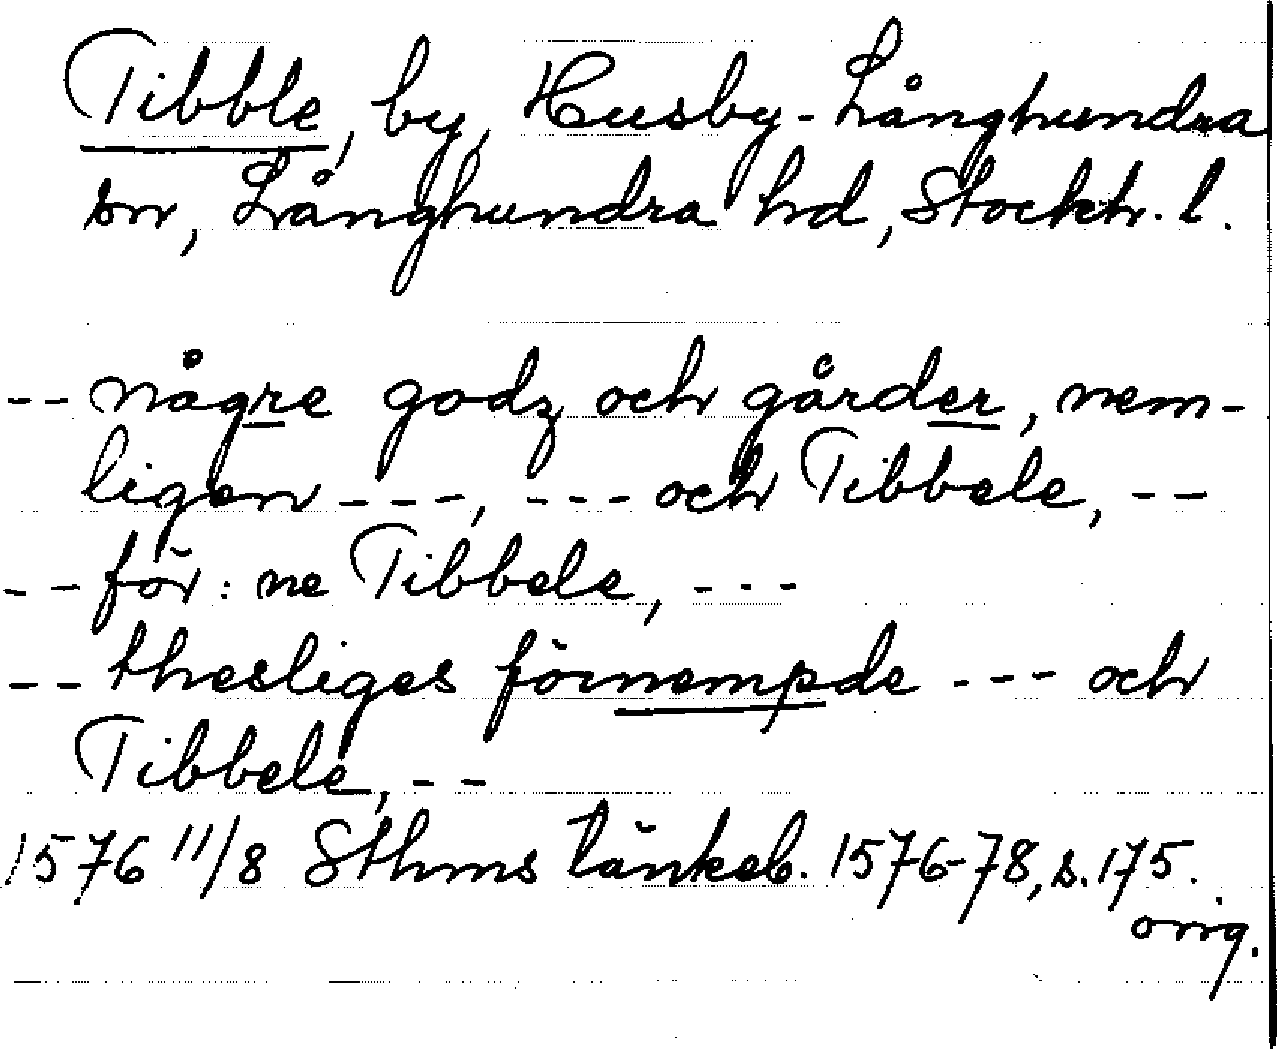 Tibble, by, Husby-Långhundra
sn, Långhundra hd, Stockh. l.
-- någre godz och gårder, nem-
ligen ---, --- och Tibbele, --
-- för: ne Tibbele, ---
-- thesliges förnempde --- och
Tibbele, --
1576 11/8 Sthms tänkeb. 1576-78, s. 175.
orig.